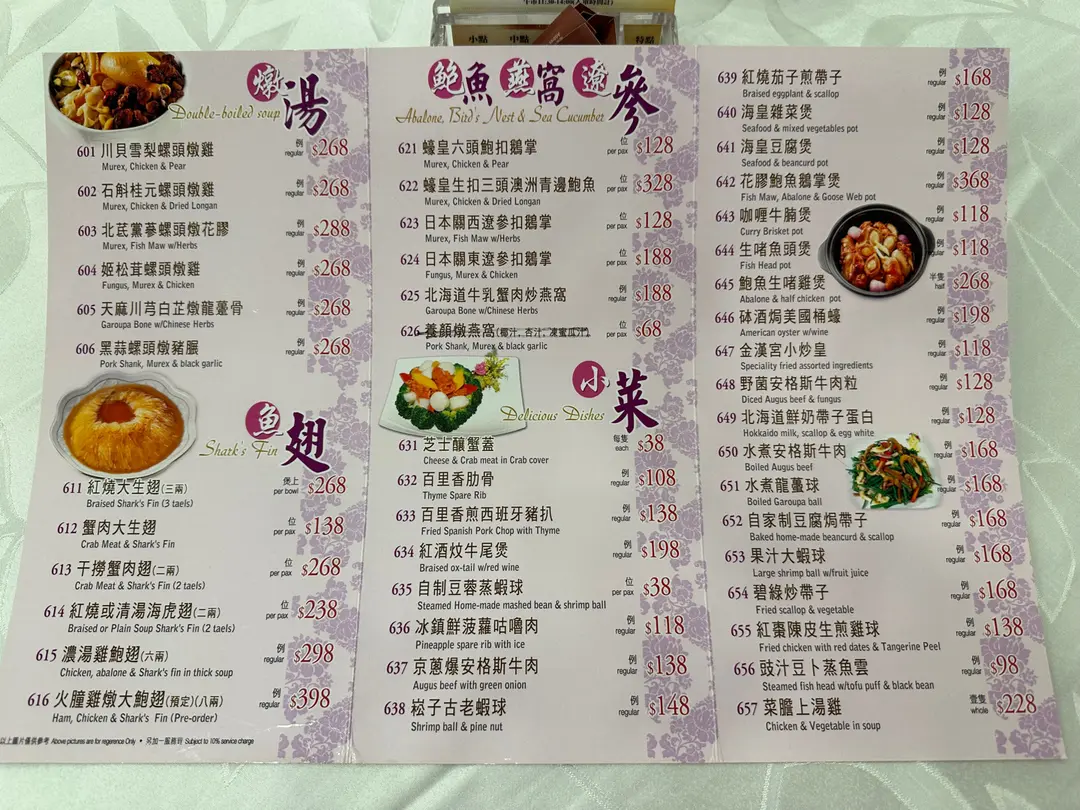 小點 中點 特點
燉湯
Double-boiled soup
601 川貝雪梨螺頭燉雞 例 regular $268
Murex, Chicken & Pear
602 石斛桂元螺頭燉雞 例 regular $268
Murex, Chicken & Dried Longan
603 北芪黨蔘螺頭燉花膠 例 regular $288
Murex, Fish Maw w/Herbs
604 姬松茸螺頭燉雞 例 regular $268
Fungus, Murex & Chicken
605 天麻川芎白芷燉龍躉骨 例 regular $268
Garoupa Bone w/Chinese Herbs
606 黑蒜螺頭燉豬𦟌 例 regular $268
Pork Shank, Murex & black garlic
魚翅
Shark's Fin
611 紅燒大生翅(三兩) 煲上 per bowl $268
Braised Shark's Fin (3 taels)
612 蟹肉大生翅 位 per pax $138
Crab Meat & Shark's Fin
613 干撈蟹肉翅(二兩) 位 per pax $268
Crab Meat & Shark's Fin (2 taels)
614 紅燒或清湯海虎翅(二兩) 位 per pax $238
Braised or Plain Soup Shark's Fin (2 taels)
615 濃湯雞鮑翅(六兩) 例 regular $298
Chicken, abalone & Shark's fin in thick soup
616 火朣雞燉大鮑翅(預定)(八兩) 例 regular $398
Ham, Chicken & Shark's Fin (Pre-order)
以上圖片僅供參考 Above pictures are for regerence Only • 另加一服務符 Subject to 10% service charge
鮑魚燕窩遼參
Abalone, Bird's Nest & Sea Cucumber
621 蠔皇六頭鮑扣鵝掌 位 per pax $128
Murex, Chicken & Pear
622 蠔皇生扣三頭澳洲青邊鮑魚 位 per pax $328
Murex, Chicken & Dried Longan
623 日本關西遼參扣鵝掌 位 per pax $128
Murex, Fish Maw w/Herbs
624 日本關東遼參扣鵝掌 位 per pax $188
Fungus, Murex & Chicken
625 北海道牛乳蟹肉炒燕窩 例 regular $188
Garoupa Bone w/Chinese Herbs
626 養顏燉燕窩(椰汁, 杏汁, 凍蜜瓜汁) 位 per pax $68
Pork Shank, Murex & black garlic
小菜
Delicious Dishes
631 芝士釀蟹蓋 每隻 each $38
Cheese & Crab meat in Crab cover
632 百里香肋骨 例 regular $108
Thyme Spare Rib
633 百里香煎西班牙豬扒 例 regular $138
Fried Spanish Pork Chop with Thyme
634 紅酒炆牛尾煲 例 regular $198
Braised ox-tail w/red wine
635 自制豆蓉蒸蝦球 位 per pax $38
Steamed Home-made mashed bean & shrimp ball
636 冰鎮鮮菠蘿咕嚕肉 例 regular $118
Pineapple spare rib with ice
637 京蔥爆安格斯牛肉 例 regular $138
Augus beef with green onion
638 崧子古老蝦球 例 regular $148
Shrimp ball & pine nut
639 紅燒茄子煎帶子 例 regular $168
Braised eggplant & scallop
640 海皇雜菜煲 例 regular $128
Seafood & mixed vegetables pot
641 海皇豆腐煲 例 regular $128
Seafood & beancurd pot
642 花膠鮑魚鵝掌煲 例 regular $368
Fish Maw, Abalone & Goose Web pot
643 咖喱牛腩煲 例 regular $118
Curry Brisket pot
644 生啫魚頭煲 例 regular $118
Fish Head pot
645 鮑魚生啫雞煲 半隻 half $268
Abalone & half chicken pot
646 砵酒焗美國桶蠔 例 regular $198
American oyster w/wine
647 金漢宮小炒皇 例 regular $118
Speciality fried assorted ingredients
648 野菌安格斯牛肉粒 例 regular $128
Diced Augus beef & fungus
649 北海道鮮奶帶子蛋白 例 regular $128
Hokkaido milk, scallop & egg white
650 水煮安格斯牛肉 例 regular $168
Boiled Augus beef
651 水煮龍躉球 例 regular $168
Boiled Garoupa ball
652 自家制豆腐焗帶子 例 regular $168
Baked home-made beancurd & scallop
653 果汁大蝦球 例 regular $168
Large shrimp ball w/fruit juice
654 碧綠炒帶子 例 regular $168
Fried scallop & vegetable
655 紅棗陳皮生煎雞球 例 regular $138
Fried chicken with red dates & Tangerine Peel
656 豉汁豆卜蒸魚雲 例 regular $98
Steamed fish head w/tofu puff & black bean
657 菜膽上湯雞 壹隻 whole $228
Chicken & Vegetable in soup